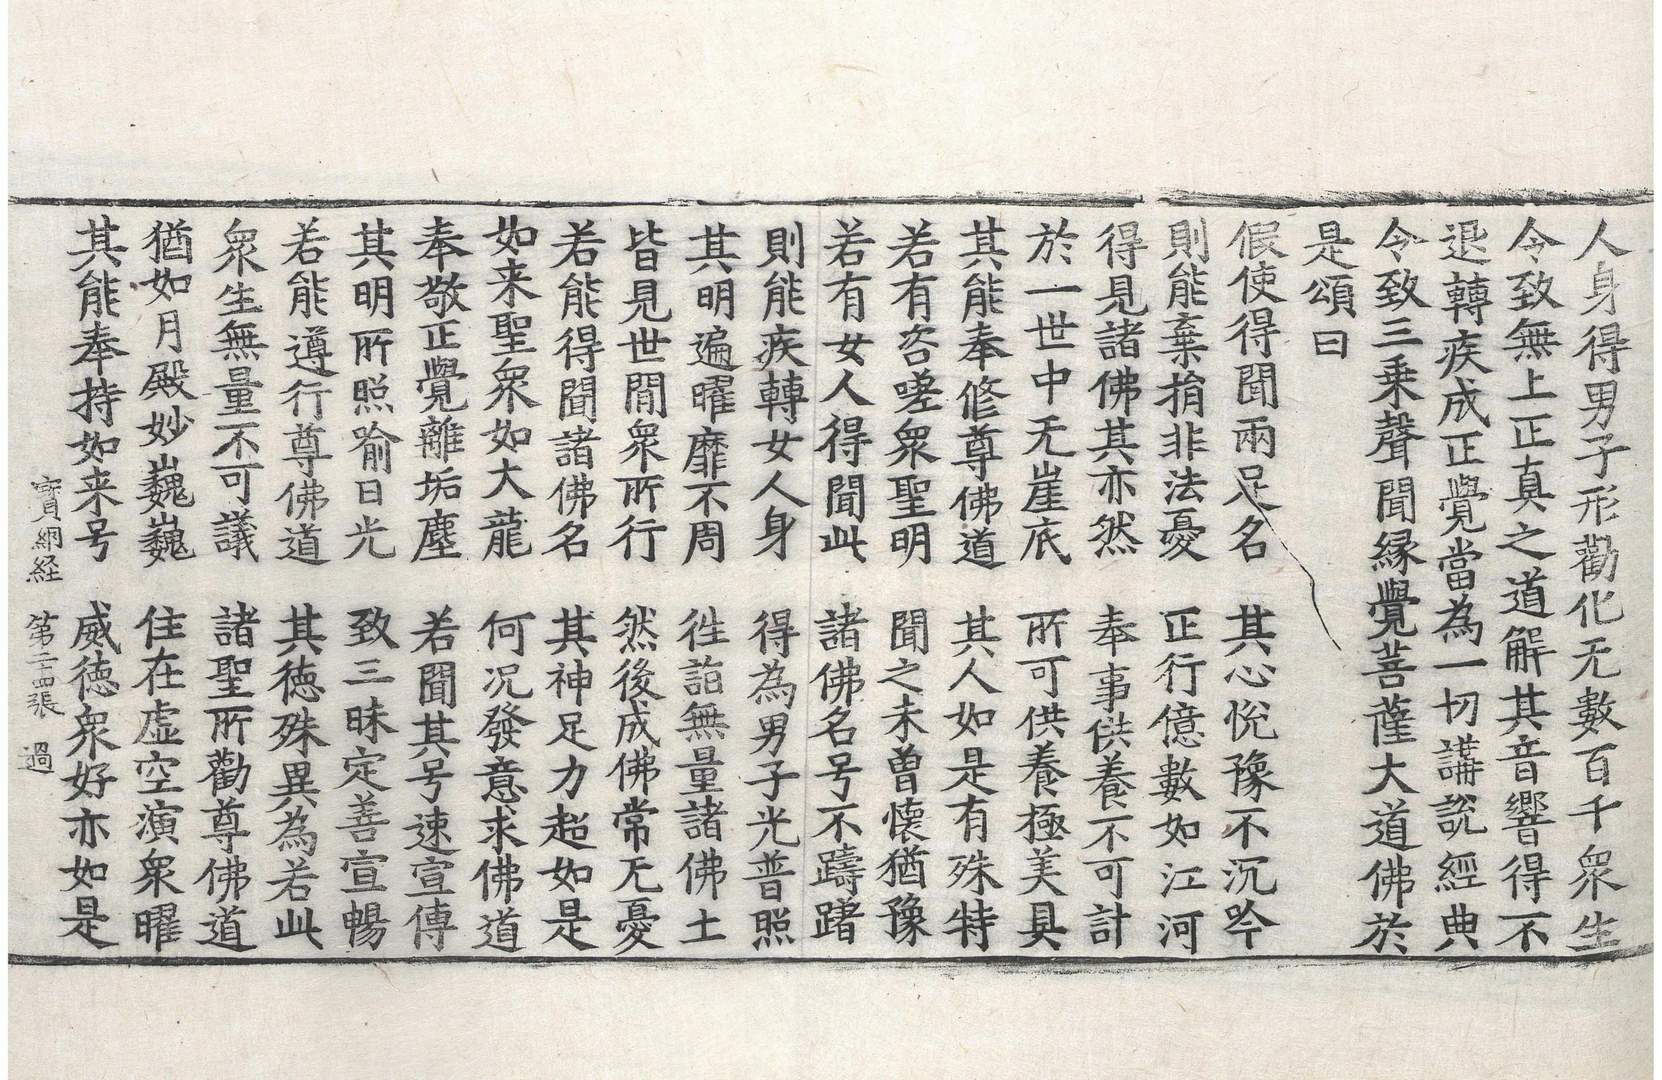 人身得男子形勸化无數百千衆生
令致無上正真之道解其音響得不
退轉疾成正覺當為一切講說經典
令致三乗聲聞縁覺菩薩大道佛於
是頌曰
假使得聞兩足名　其心悅豫不沉吟
則能棄捐非法憂　正行億數如江河
得見諸佛其亦然　奉事供養不可計
於一世中无崖底　所可供養極美具
其能奉修尊佛道　其人如是有殊特
若有咨嗟衆聖明　聞之未曽懷猶豫
若有女人得聞此　諸佛名号不躊躇
則能疾轉女人身　得為男子光普照
其明遍曜靡不周　徃詣無量諸佛土
皆見世間衆所行　然後成佛常无憂
若能得聞諸佛名　其神足力超如是
如来聖衆如大龍　何况發意求佛道
奉敬正覺離垢塵　若聞其号速宣傳
其明所照踰日光　致三昧定善宣暢
若能遵行尊佛道　其徳殊異為若此
衆生無量不可議　諸聖所勸尊佛道
猶如月殿妙巍巍　住在虚空演衆曜
其能奉持如来号　威徳衆好亦如是
寳網経　第二十四張　過